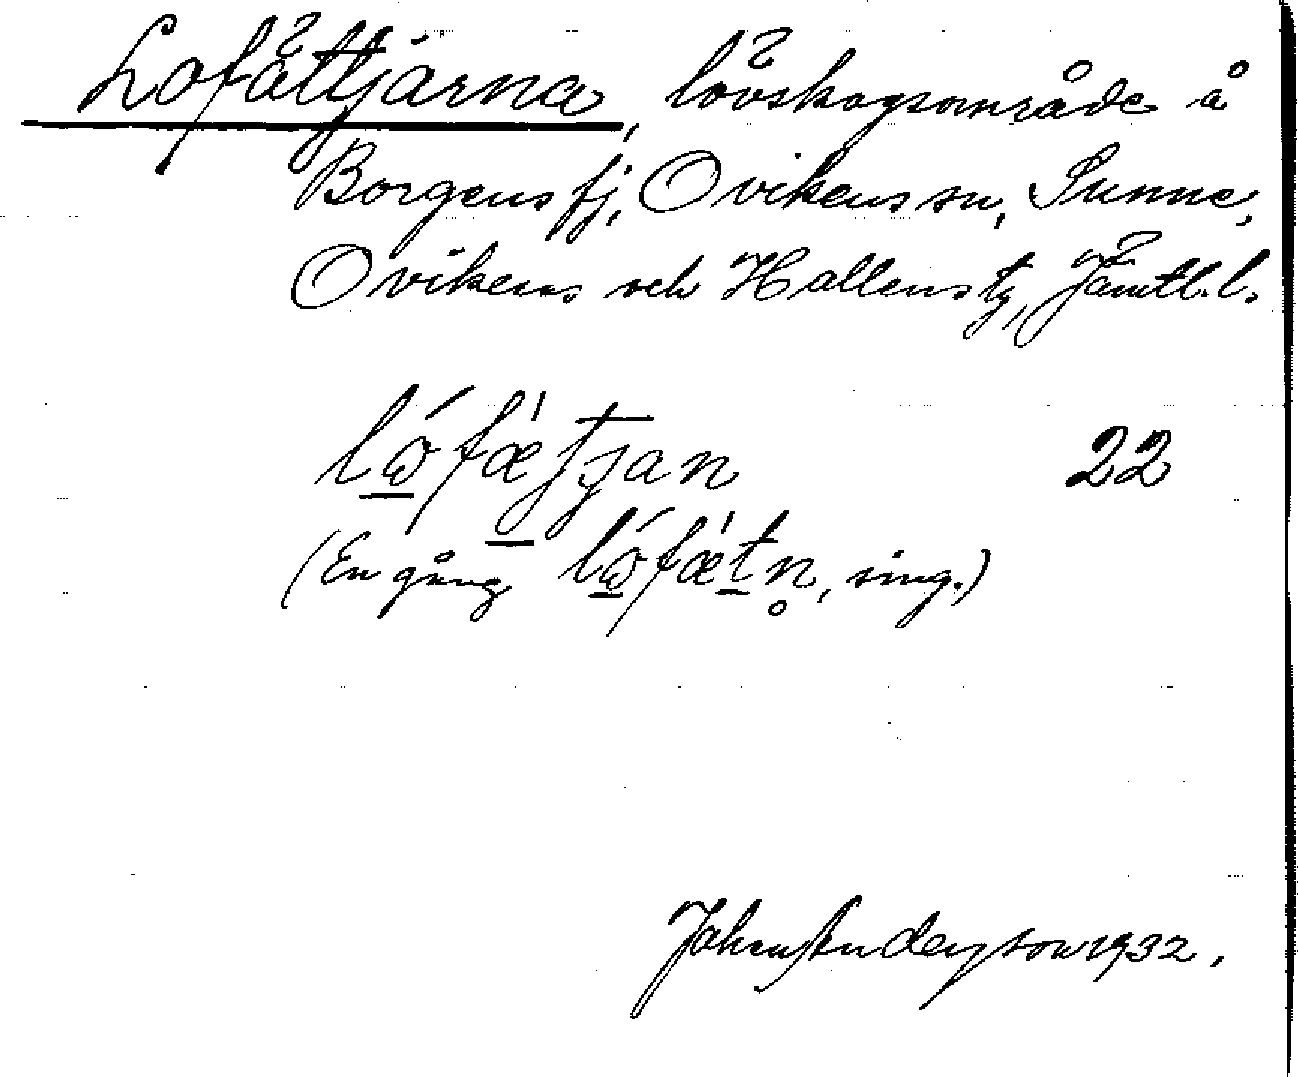 Lofättjärna, lövskogsområde å
Borgens fj, Ovikens sn, Sunne,
Ovikens och Hallens tg, Jämtl. l.
lófæ̀tjan 22
(En gång lófæ̀tn̥, sing.)
Johan Andersson 1932.